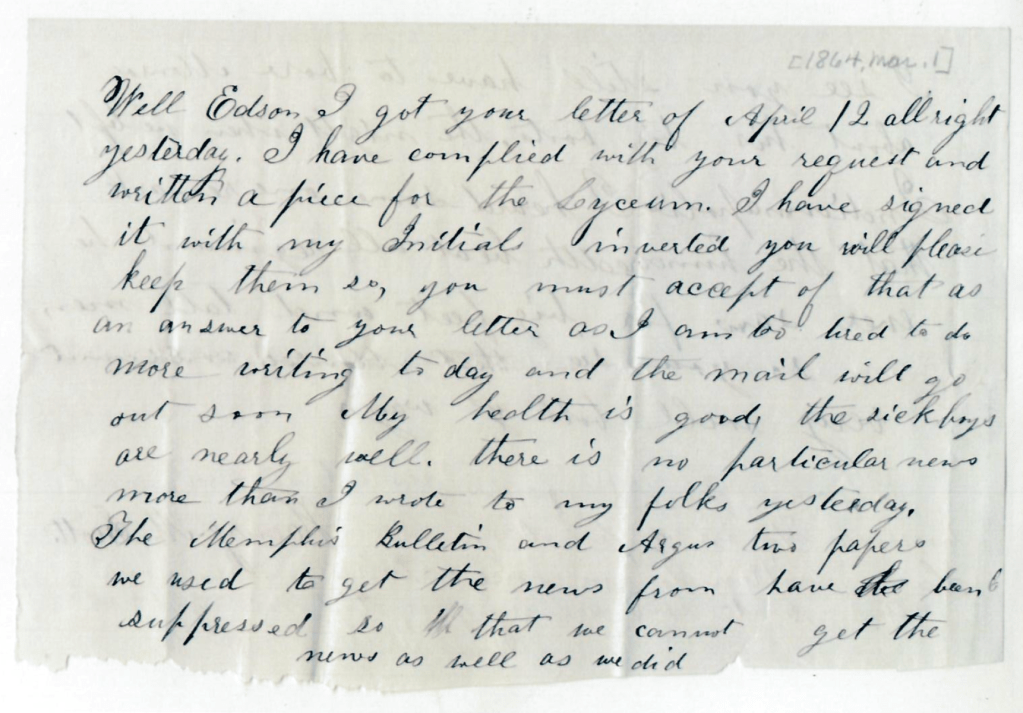 [1864, Mar. 1]
Well Edson I got your letter of April 12 all right
yesterday. I have complied with your request and
written a piece for the Lyceum. I have signed
it with my Initials inverted you will please
keep them so, you must accept of that as
an answer to your letter as I am to tired to do
more writing to day and the mail will go
out soon My health is good, the sick boys
are nearly well. there is no particular news
more than I wrote to my folks yesterday.
The Memphis Bulletin and Argus two papers
we used to get the news from have been
suppressed so that we cannot get the
news as well as we did